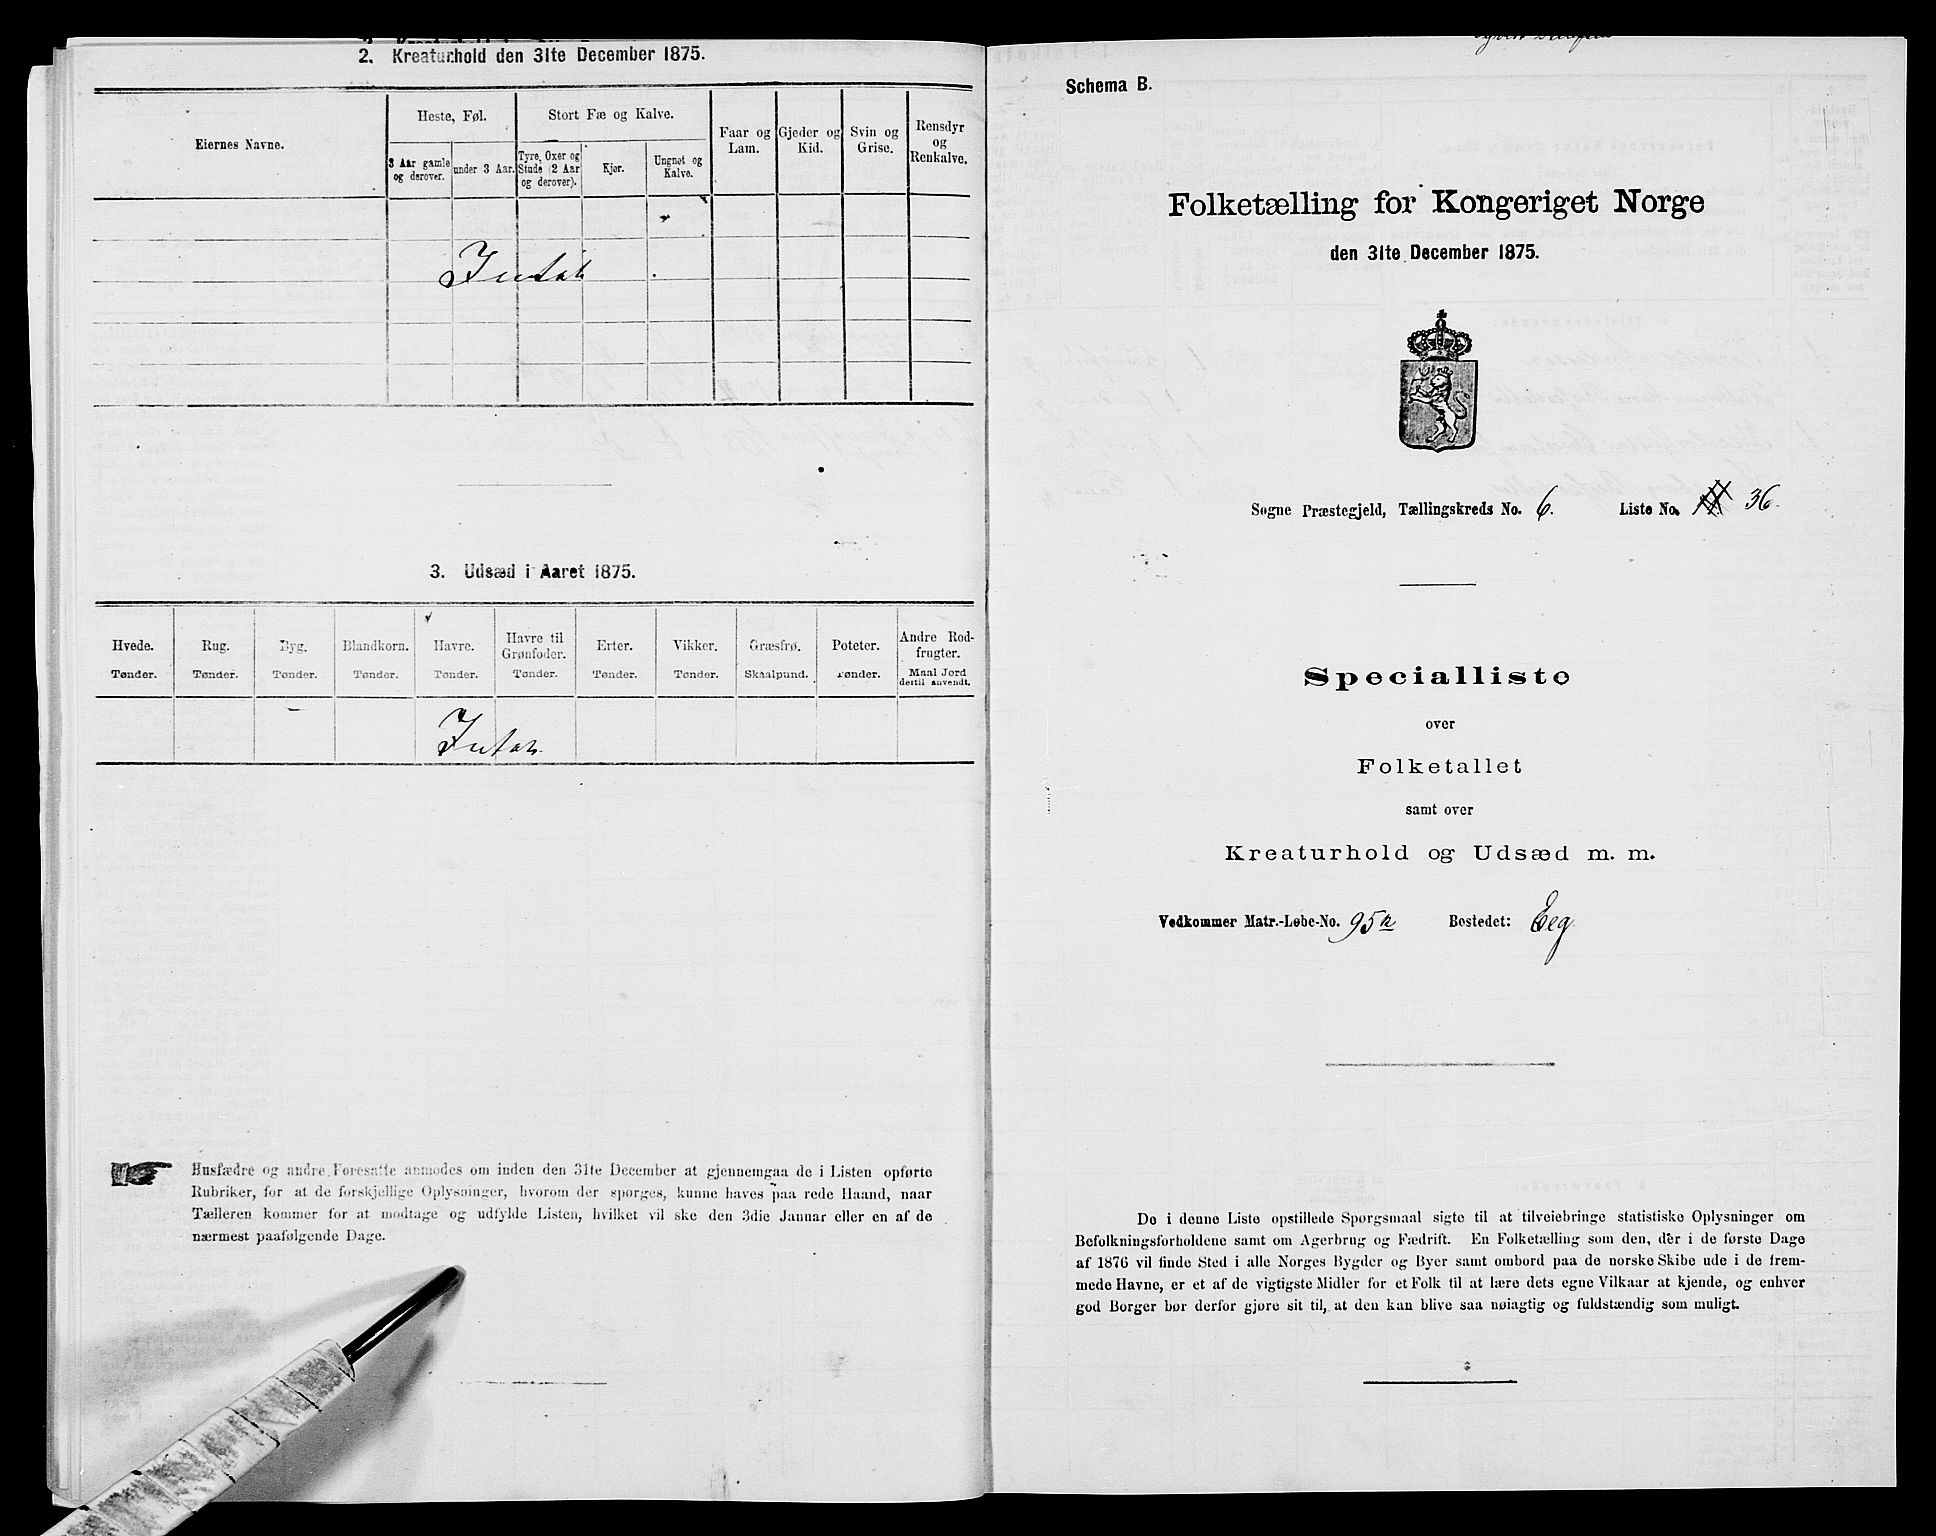 2. Kreaturhold den 31te December 1875.
Eiernes Navne.
Heste, Føl.
Stort Fæ og Kalve.
Faar og Lam.
Gjeder og Kid.
Svin og Grise.
Rensdyr og Renkalve.
3 Aar gamle og derover.
under 3 Aar.
Tyre, Oxer og Stude (2 Aar og derover).
Kjør.
Ungnøt og Kalve.
Intet
3. Udsæd i Aaret 1875.
Hvede. Rug. Byg. Blandkorn. Havre. Havre til Grønfoder. Erter. Vikker. Græsfrø. Poteter. Andre Rodfrugter.
Tønder. Tønder. Tønder. Tønder. Tønder. Tønder. Tønder. Tønder. Skaalpund. Tønder. Maal Jord dertil anvendt.
Intet
Husfædre og andre Foresatte anmodes om inden den 31te December at gjennemgaa de i Listen opførte
Rubriker, for at de forskjellige Oplysninger, hvorom der spørges, kunne haves paa rede Haand, naar
Tælleren kommer for at modtage og udfylde Listen, hvilket vil ske den 3die Januar eller en af de
nærmest paafølgende Dage.
Schema B.
Folketælling for Kongeriget Norge
den 31te December 1875.
Søgne Præstegjeld, Tællingskreds No. 6. Liste No. 36.
Specialliste
over
Folketallet
samt over
Kreaturhold og Udsæd m. m.
Vedkommer Matr.-Løbe-No. 95a Bostedet: Eeg
De i denne Liste opstillede Spørgsmaal sigte til at tilveiebringe statistiske Oplysninger om
Befolkningsforholdene samt om Agerbrug og Fædrift. En Folketælling som den, der i de første Dage
af 1876 vil finde Sted i alle Norges Bygder og Byer samt ombord paa de norske Skibe ude i de frem-
mede Havne, er et af de vigtigste Midler for et Folk til at lære dets egne Vilkaar at kjende, og enhver
god Borger bør derfor gjøre sit til, at den kan blive saa nøiagtig og fuldstændig som muligt.